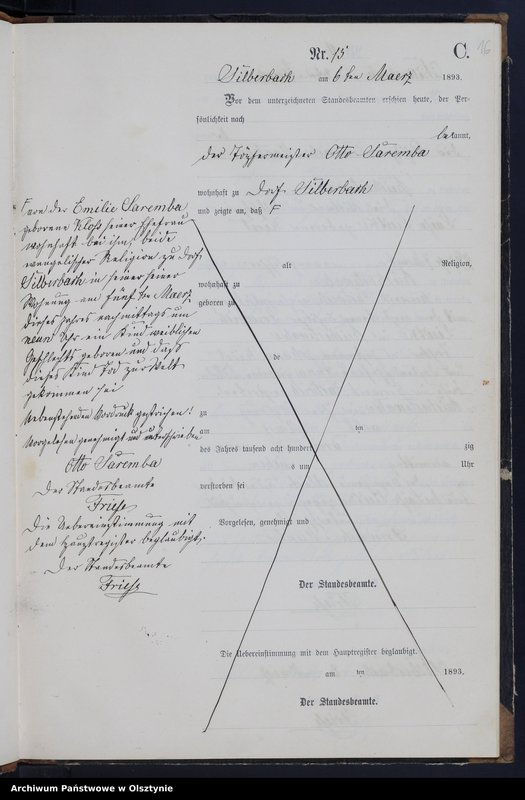 Nr. 15
C.
16
Silberbach am 6ten Maerz 1893.
Vor dem unterzeichneten Standesbeamten erschien heute, der Per-
sönlichkeit nach
bekannt,
der Töpfermeister Otto Saremba
wohnhaft zu Dorf Silberbach
und zeigte an, daß F
F von der Emilie Saremba
geborene Kloß seiner Ehefrau
wohnhaft bei ihm, beide
evangelischer Religion zu Dorf
Silberbach in seiner
Wohnung am fünften Maerz
dieses Jahres nachmittags um
neun Uhr ein Kind weiblichen
Geschlechts geboren und daß
dieses Kind Tod zur Welt
gekommen sei
Nebenstehenden Vordruck gestrichen!
Vorgelesen genehmigt und unterschrieben
Otto Saremba
Der Standesbeamte
Friese
Die Uebereinstimmung mit
dem Hauptregister beglaubigt.
Der Standesbeamte
Friese
alt Religion,
wohnhaft zu
geboren zu
zu
am ten
des Jahres tausend acht hundert zig
s um Uhr
verstorben sei
Vorgelesen, genehmigt und
Der Standesbeamte.
Die Uebereinstimmung mit dem Hauptregister beglaubigt.
am ten 1893.
Der Standesbeamte.
Archiwum Państwowe w Olsztynie